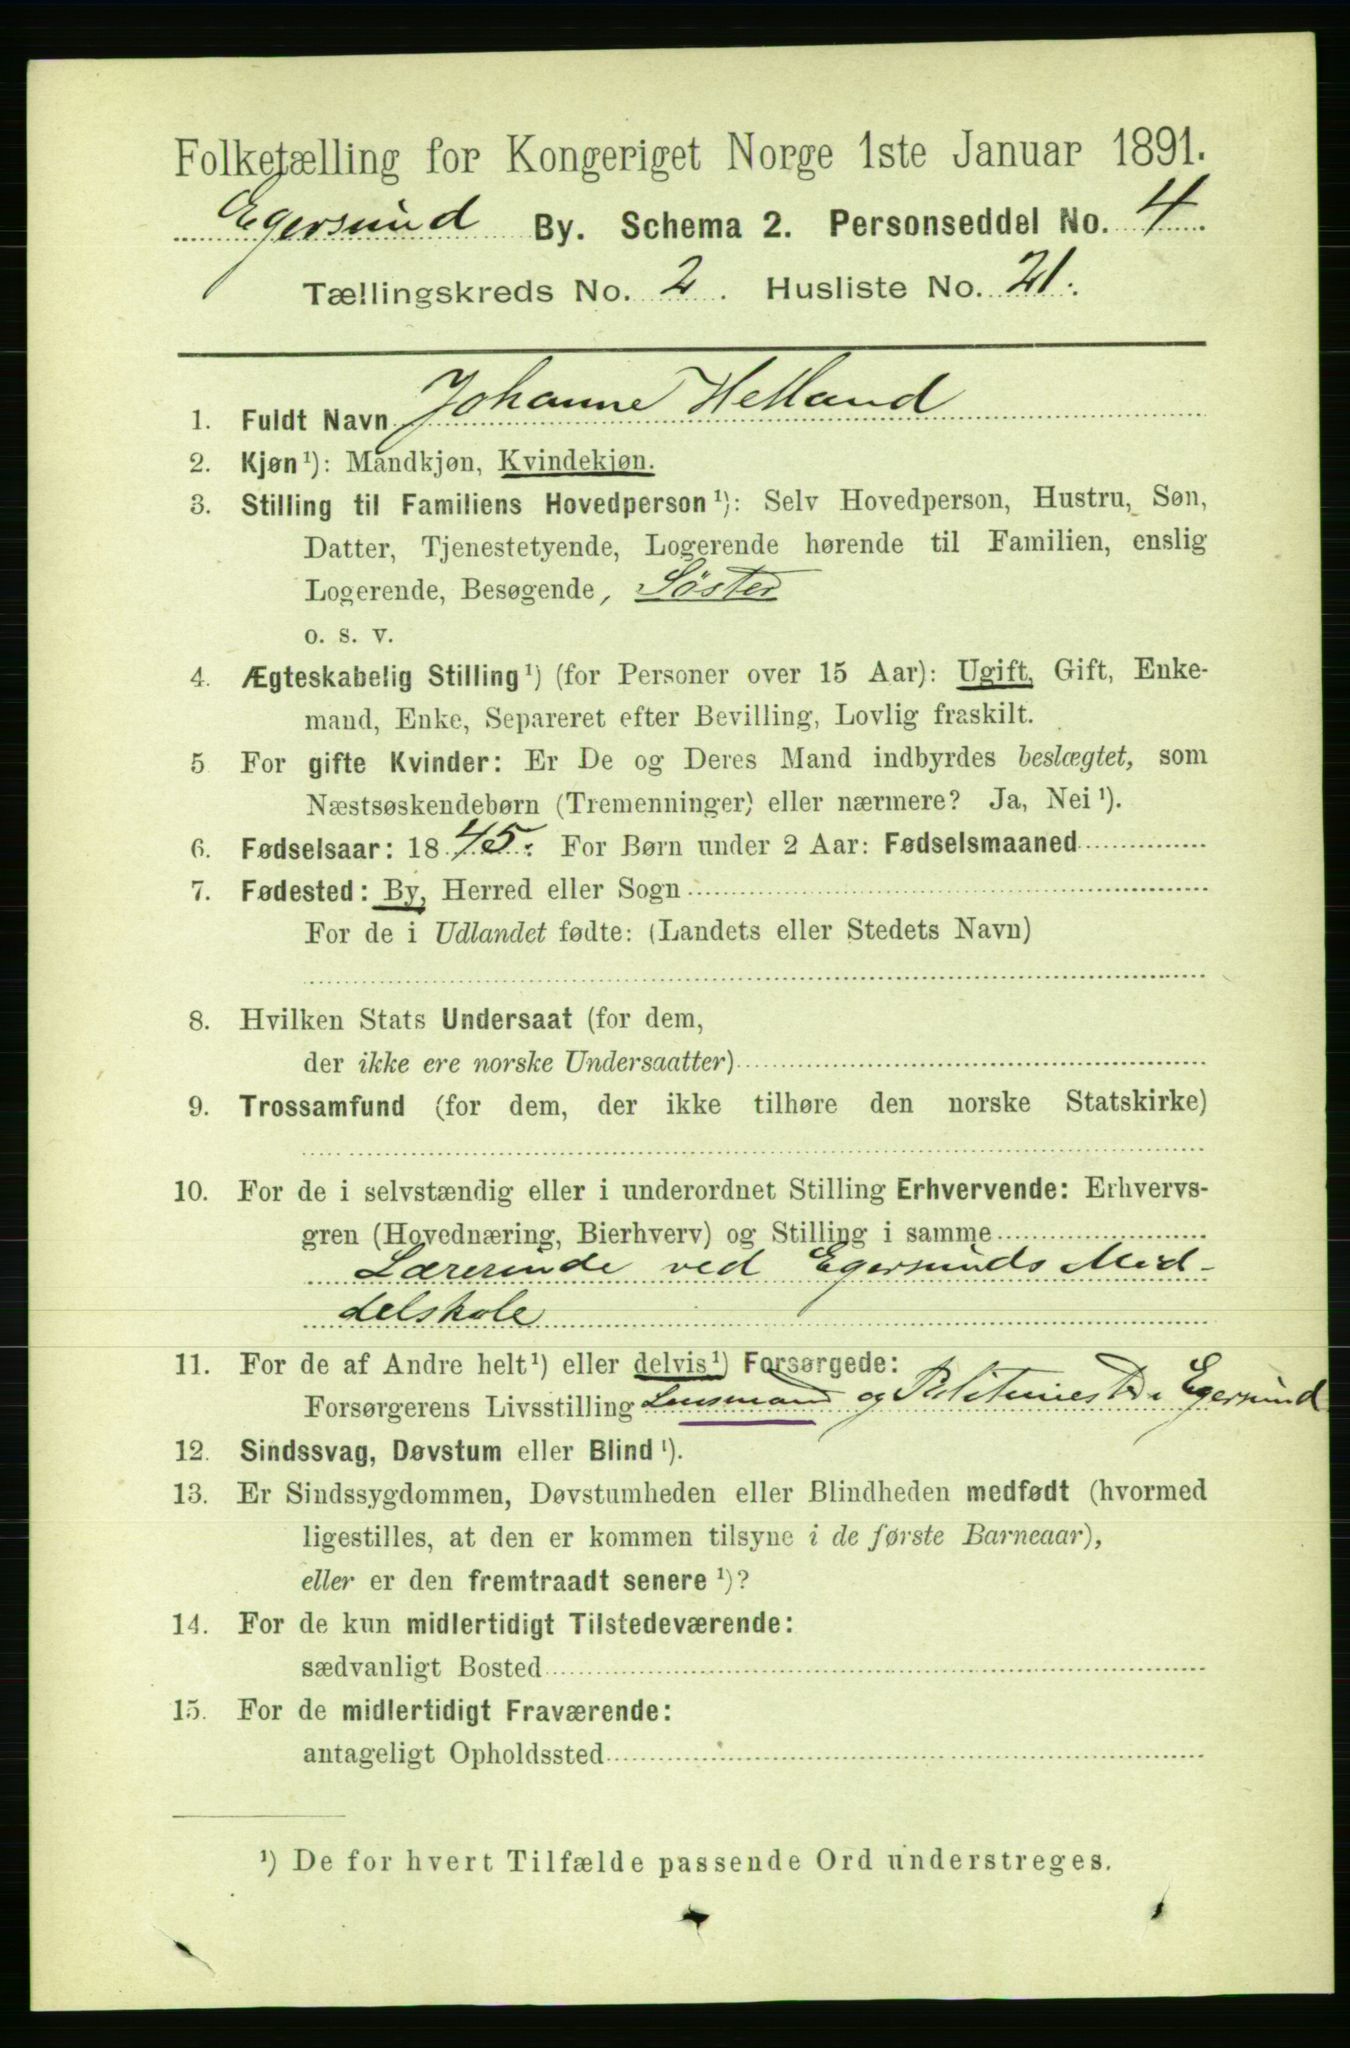 Folketælling for Kongeriget Norge 1ste Januar 1891.
Egersund By. Schema 2. Personseddel No. 4.
Tællingskreds No. 2. Husliste No. 21.
1. Fuldt Navn Johanne Helland
2. Kjøn ¹): Mandkjøn, Kvindekjøn.
3. Stilling til Familiens Hovedperson ¹): Selv Hovedperson, Hustru, Søn,
Datter, Tjenestetyende, Logerende hørende til Familien, enslig
Logerende, Besøgende, Søster
o. s. v.
4. Ægteskabelig Stilling ¹) (for Personer over 15 Aar): Ugift, Gift, Enke-
mand, Enke, Separeret efter Bevilling, Lovlig fraskilt.
5 For gifte Kvinder: Er De og Deres Mand indbyrdes beslægtet, som
Næstsøskendebørn (Tremenninger) eller nærmere? Ja, Nei ¹).
6. Fødselsaar: 1845. For Børn under 2 Aar: Fødselsmaaned
7. Fødested: By, Herred eller Sogn
For de i Udlandet fødte: (Landets eller Stedets Navn)
8. Hvilken Stats Undersaat (for dem,
der ikke ere norske Undersaatter)
9. Trossamfund (for dem, der ikke tilhøre den norske Statskirke)
10. For de i selvstændig eller i underordnet Stilling Erhvervende: Erhvervs-
gren (Hovednæring, Bierhverv) og Stilling i samme
Lærerinde ved Egersunds Mid-
delskole
11. For de af Andre helt ¹) eller delvis ¹) Forsørgede:
Forsørgerens Livsstilling Lensmand og Politimester i Egersund
12. Sindssvag, Døvstum eller Blind ¹).
13. Er Sindssygdommen, Døvstumheden eller Blindheden medfødt (hvormed
ligestilles, at den er kommen tilsyne i de første Barneaar),
eller er den fremtraadt senere ¹)?
14. For de kun midlertidigt Tilstedeværende:
sædvanligt Bosted
15. For de midlertidigt Fraværende:
antageligt Opholdssted
¹) De for hvert Tilfælde passende Ord understreges.